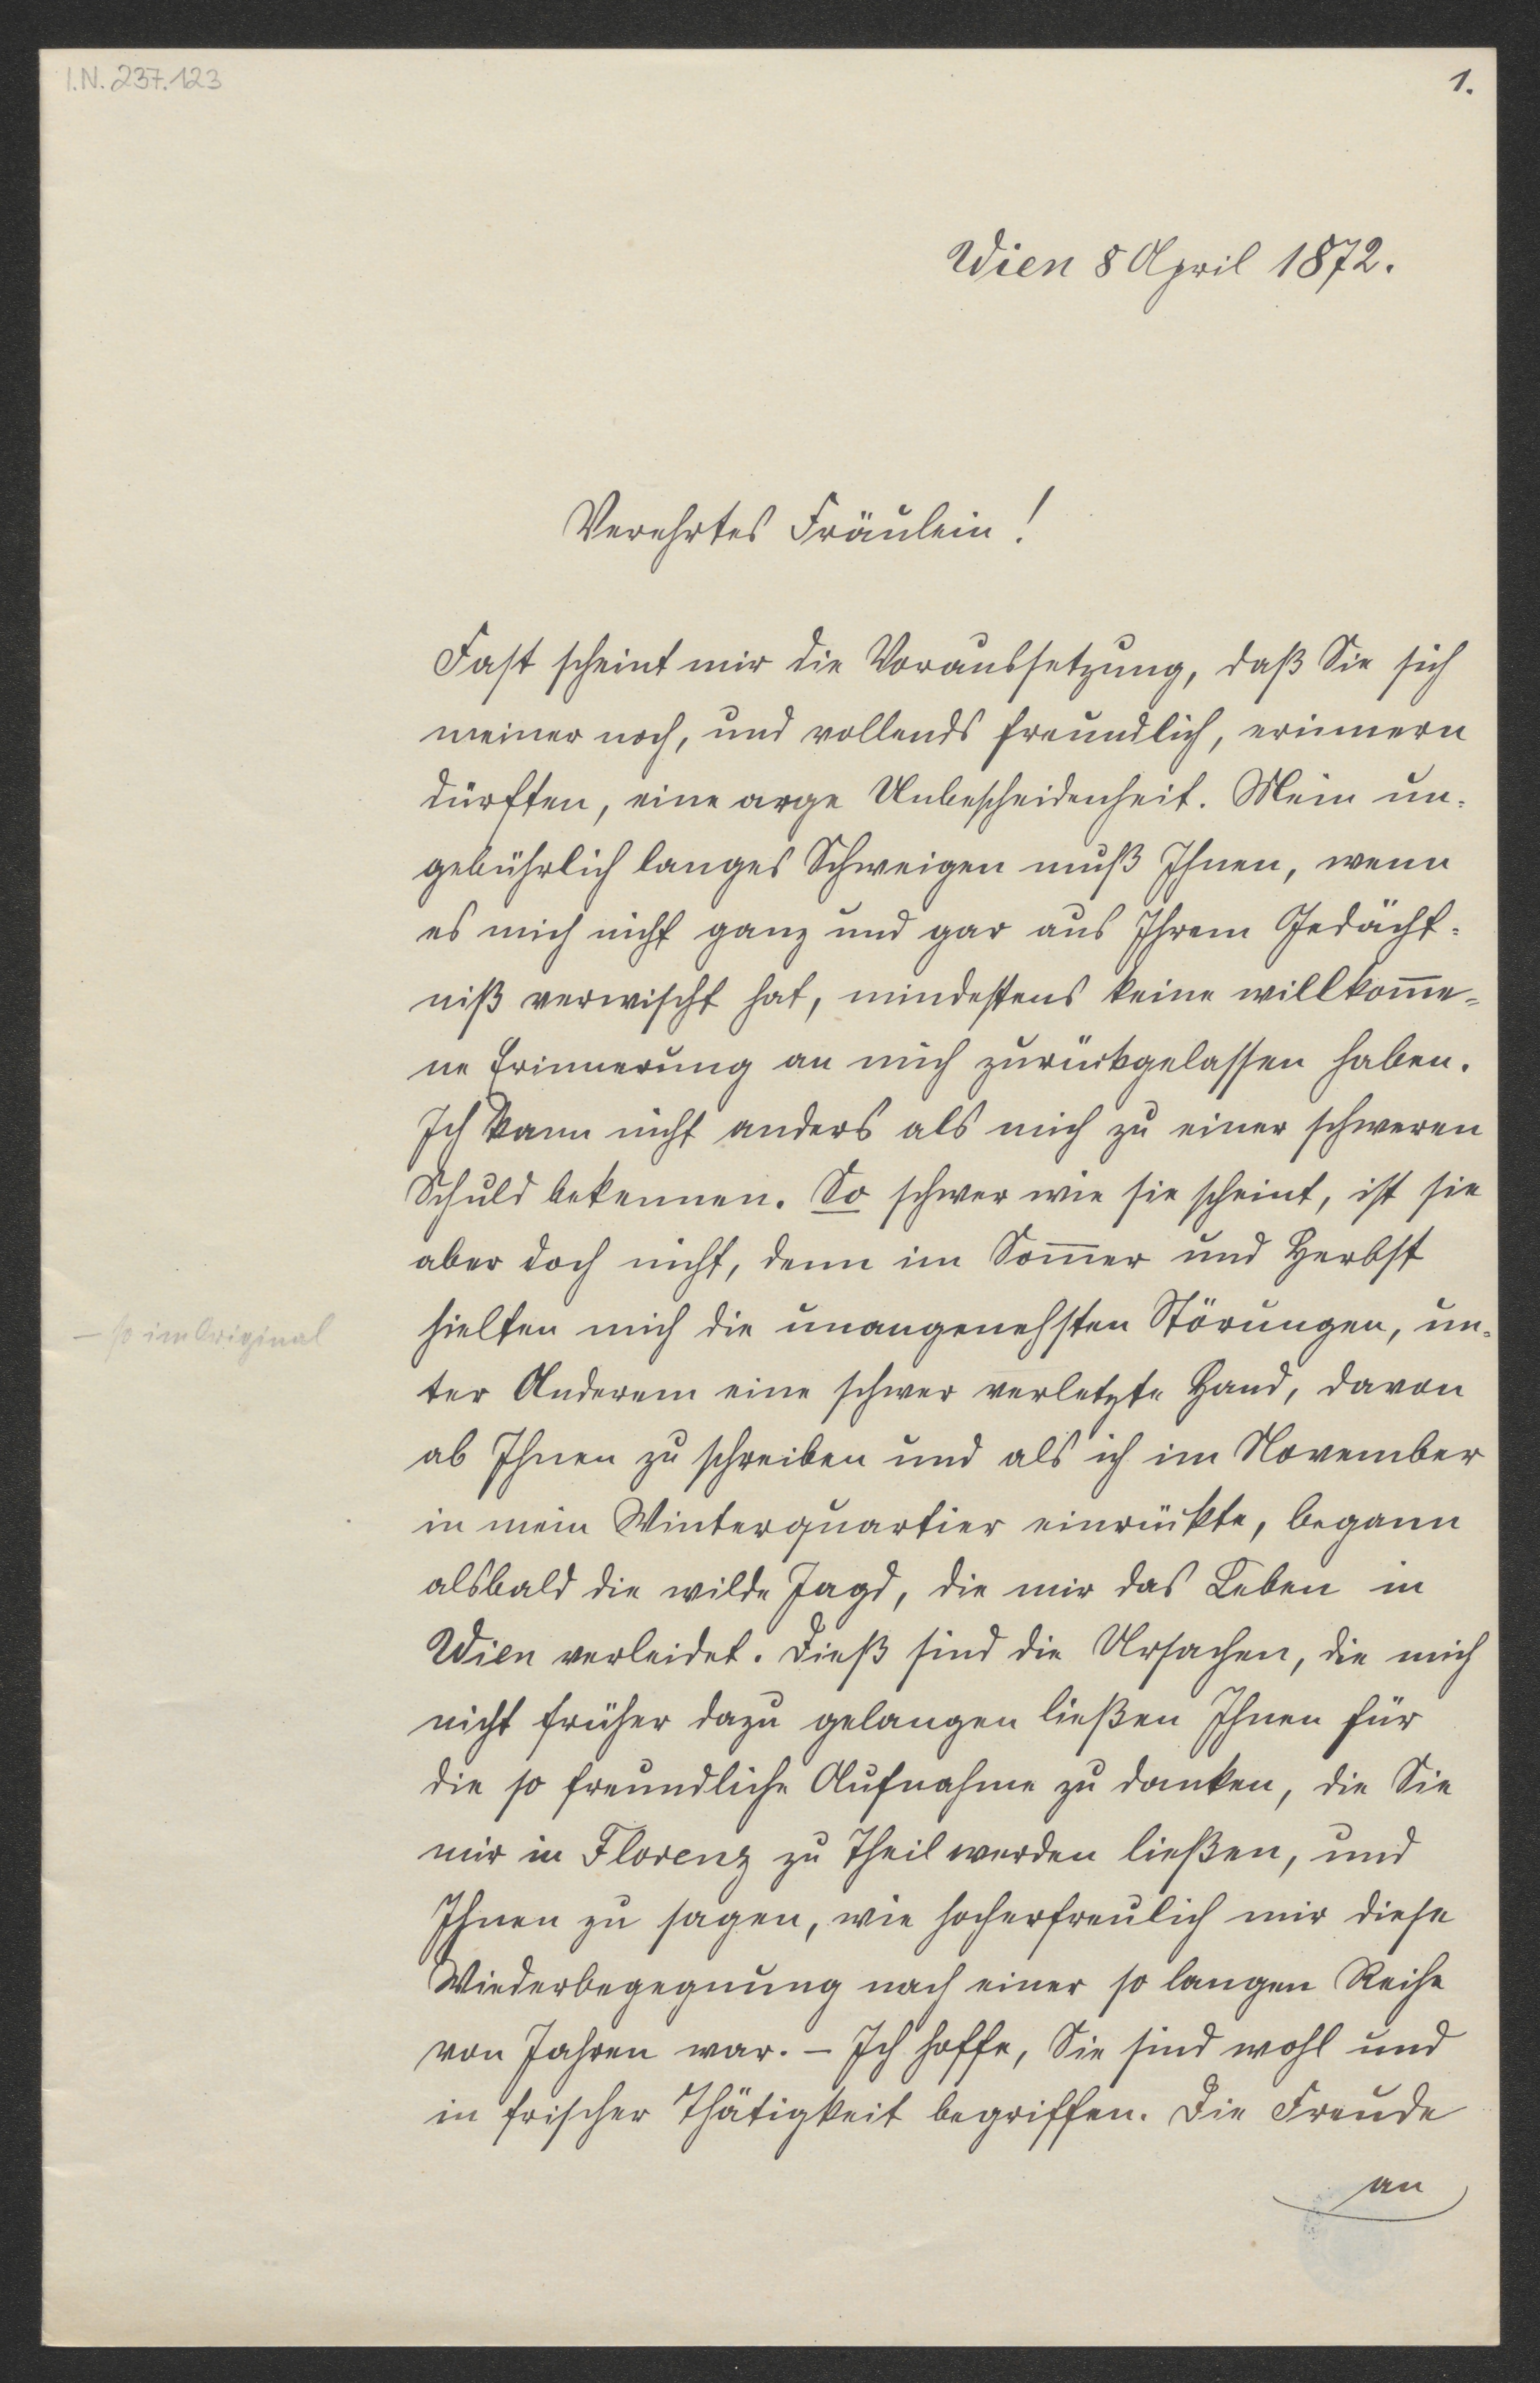 I.N. 237.123
1.
Wien 8 April 1872.
Verehrtes Fräulein!
Fast scheint mir die Voraussetzung, daß Sie sich
meiner noch, und vollends freundlich, erinnern
dürften, eine arge Unbescheidenheit. Mein un-
gebührlich langes Schweigen muß Ihnen, wenn
es mich nicht ganz und gar aus Ihrem Gedächt-
niß verwischt hat, mindestens keine willkom̅e-
ne Erinnerung an mich zurückgelassen haben.
Ich kann nicht anders als mich zu einer schweren
Schuld bekennen. So schwer wie sie scheint, ist sie
aber doch nicht, denn im Som̅er und Herbst
— so im Original
hielten mich die unangenehsten Störungen, un-
ter Anderem eine schwer verletzte Hand, davon
ab Ihnen zu schreiben und als ich im November
in mein Winterquartier einrückte, begann
alsbald die wilde Jagd, die mir das Leben in
Wien verleidet. Dieß sind die Ursachen, die mich
nicht früher dazu gelangen ließen Ihnen für
die so freundliche Aufnahme zu danken, die Sie
mir in Florenz zu Theil werden ließen, und
Ihnen zu sagen, wie hocherfreulich mir diese
Wiederbegegnung nach einer so langen Reihe
von Jahren war. — Ich hoffe, Sie sind wohl und
in frischer Thätigkeit begriffen. Die Freude
an